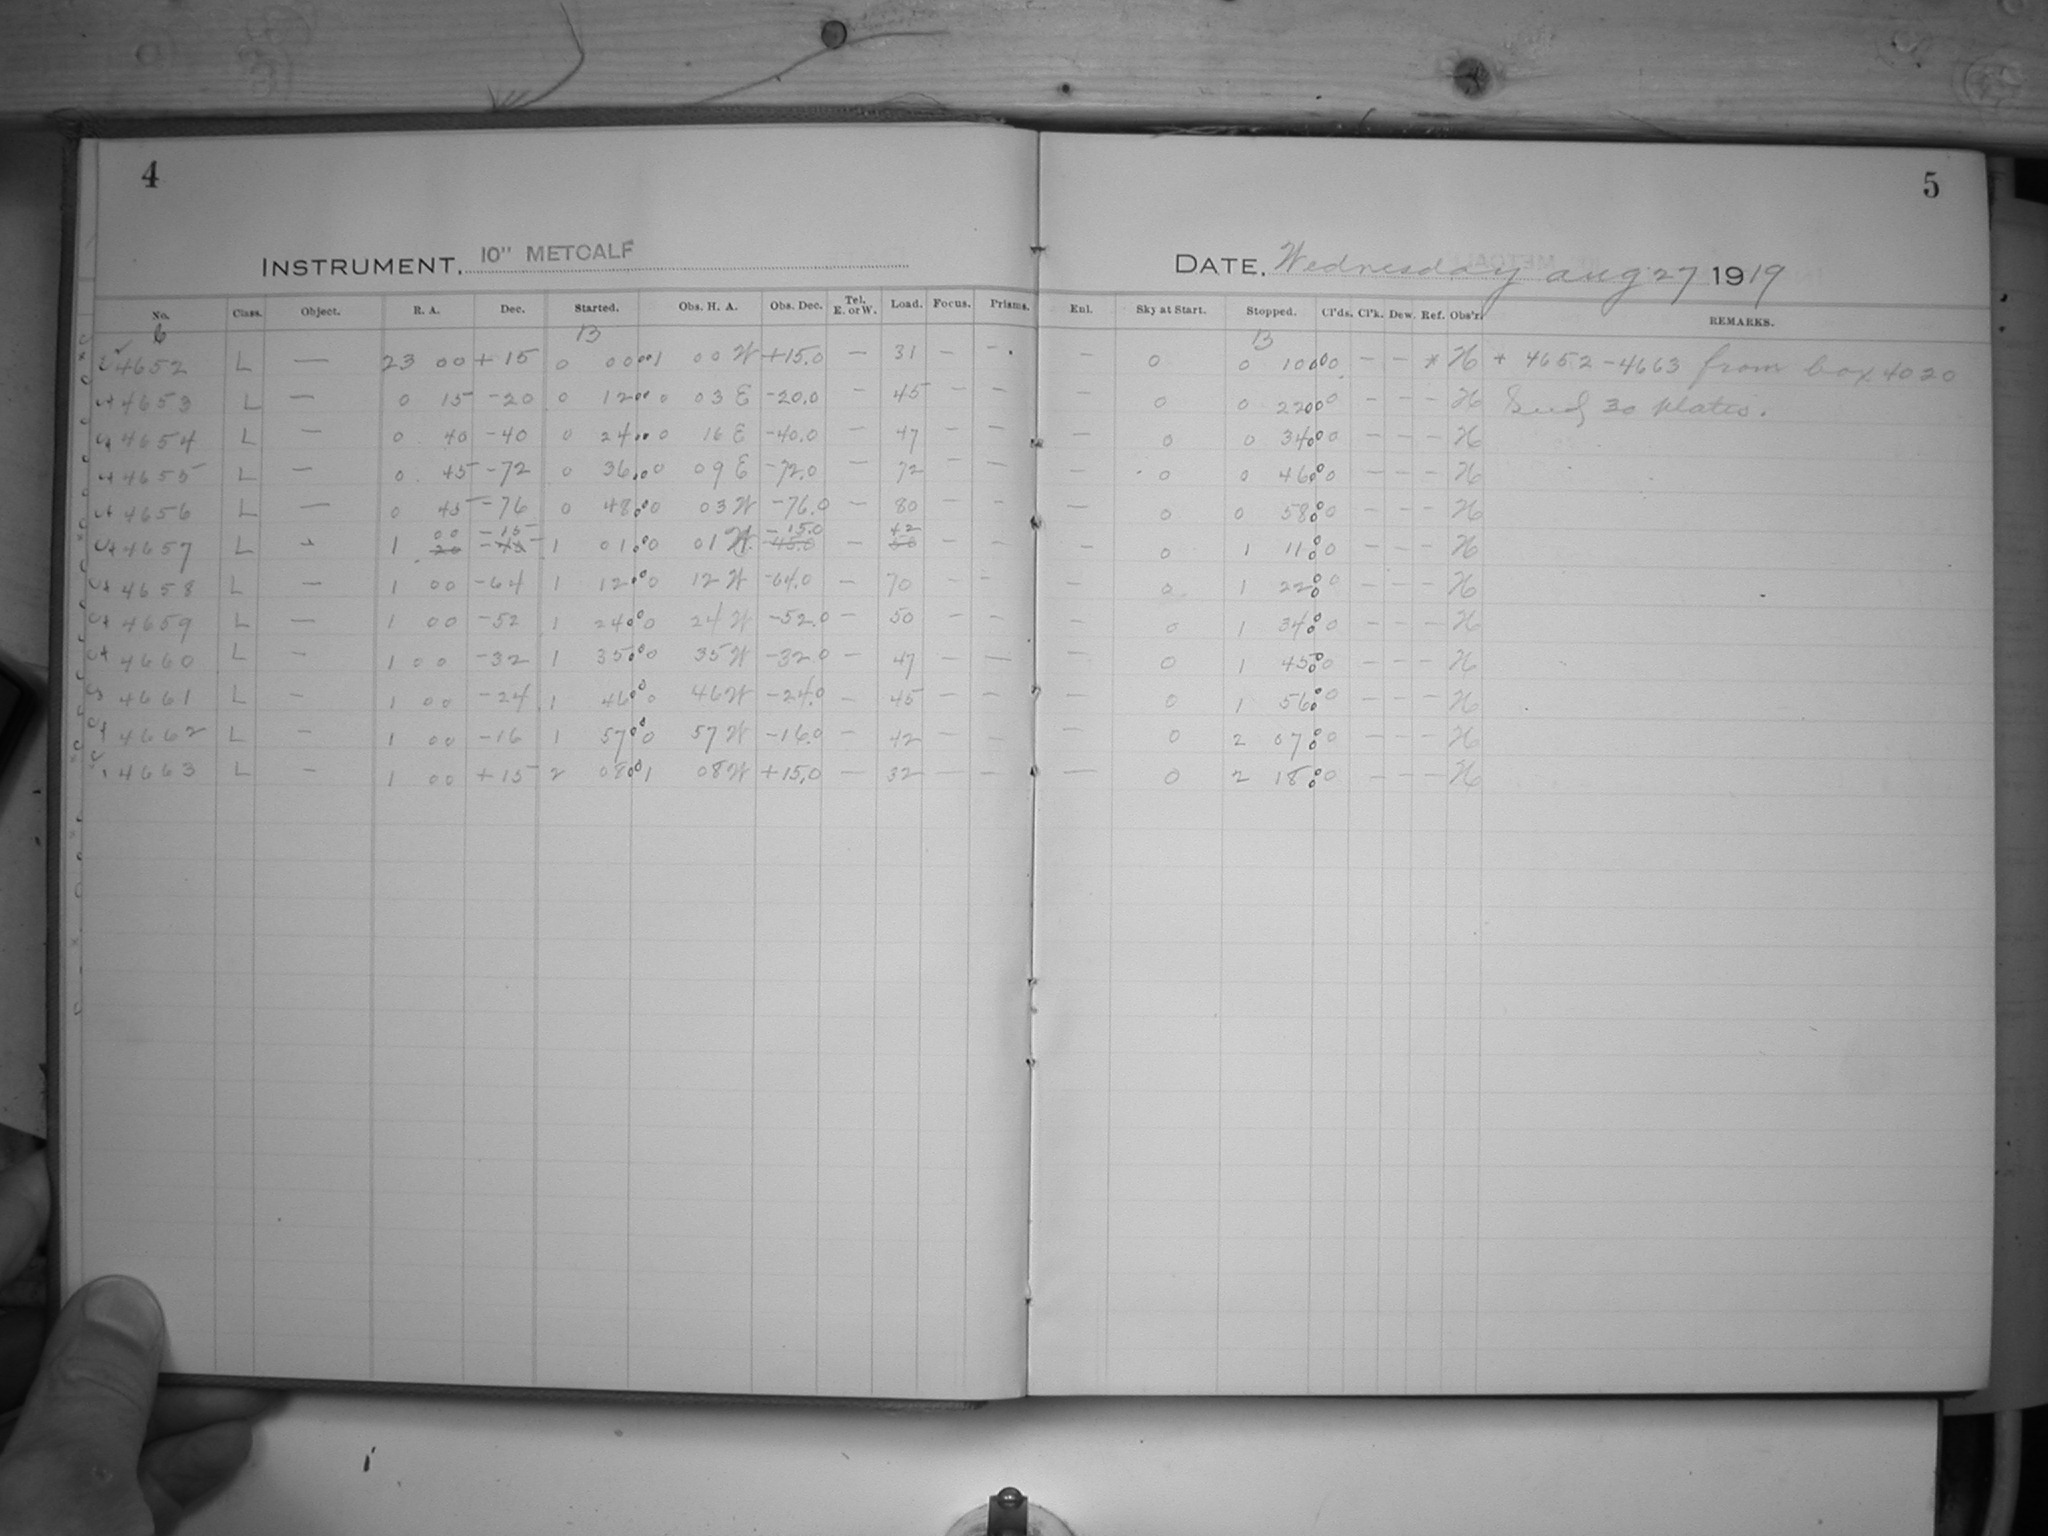 4 5
INSTRUMENT. 10" METCALF DATE. Wednesday Aug 27 1919
No. Class. Object. R. A. Dec. Started. Obs. H. A. Obs. Dec. Tel. E. or W. Load. Focus. Prisms. Enl. Sky at Start. Stopped. Cl'ds. Cl'k. Dew. Ref. Obs'r. REMARKS.
4652 L — 23 00 +15 0 00 1 00 W +15.0 — 31 — — — 0 0 10 0 — — * H * 4652-4663 from box 4020
4653 L — 0 15 -20 0 12 0 03 E -20.0 45 — — — 0 0 22 0 — — — H 30 plates.
4654 L — 0 40 -40 0 24 0 16 E -40.0 — 47 — — — 0 0 34 0 — — — H
4655 L — 0 45 -72 0 36 0 09 E -72.0 — 72 — — — 0 0 46 0 — — — H
4656 L — 0 45 -76 0 48 0 03 W -76.0 — 80 — — — 0 0 58 0 — — — H
00 -15 -15.0 42
4657 L - 1 20 -45 1 01 0 01 W -45.0 — 50 — — — 0 1 11 0 — — — H
4658 L — 1 00 -64 1 12 0 12 W -64.0 — 70 — — — 0 1 22 0 — — — H
4659 L — 1 00 -52 1 24 0 24 W -52.0 — 50 — — — 0 1 34 0 — — — H
4660 L — 1 00 -32 1 35 0 35 W -32.0 — 47 — — — 0 1 45 0 — — — H
4661 L — 1 00 -24 1 46 0 46 W -24.0 — 45 — — — 0 1 56 0 — — — H
4662 L — 1 00 -16 1 57 0 57 W -16.0 — 42 — — — 0 2 07 0 — — — H
4663 L — 1 00 +15 2 08 1 08 W +15.0 — 32 — — — 0 2 18 0 — — — H